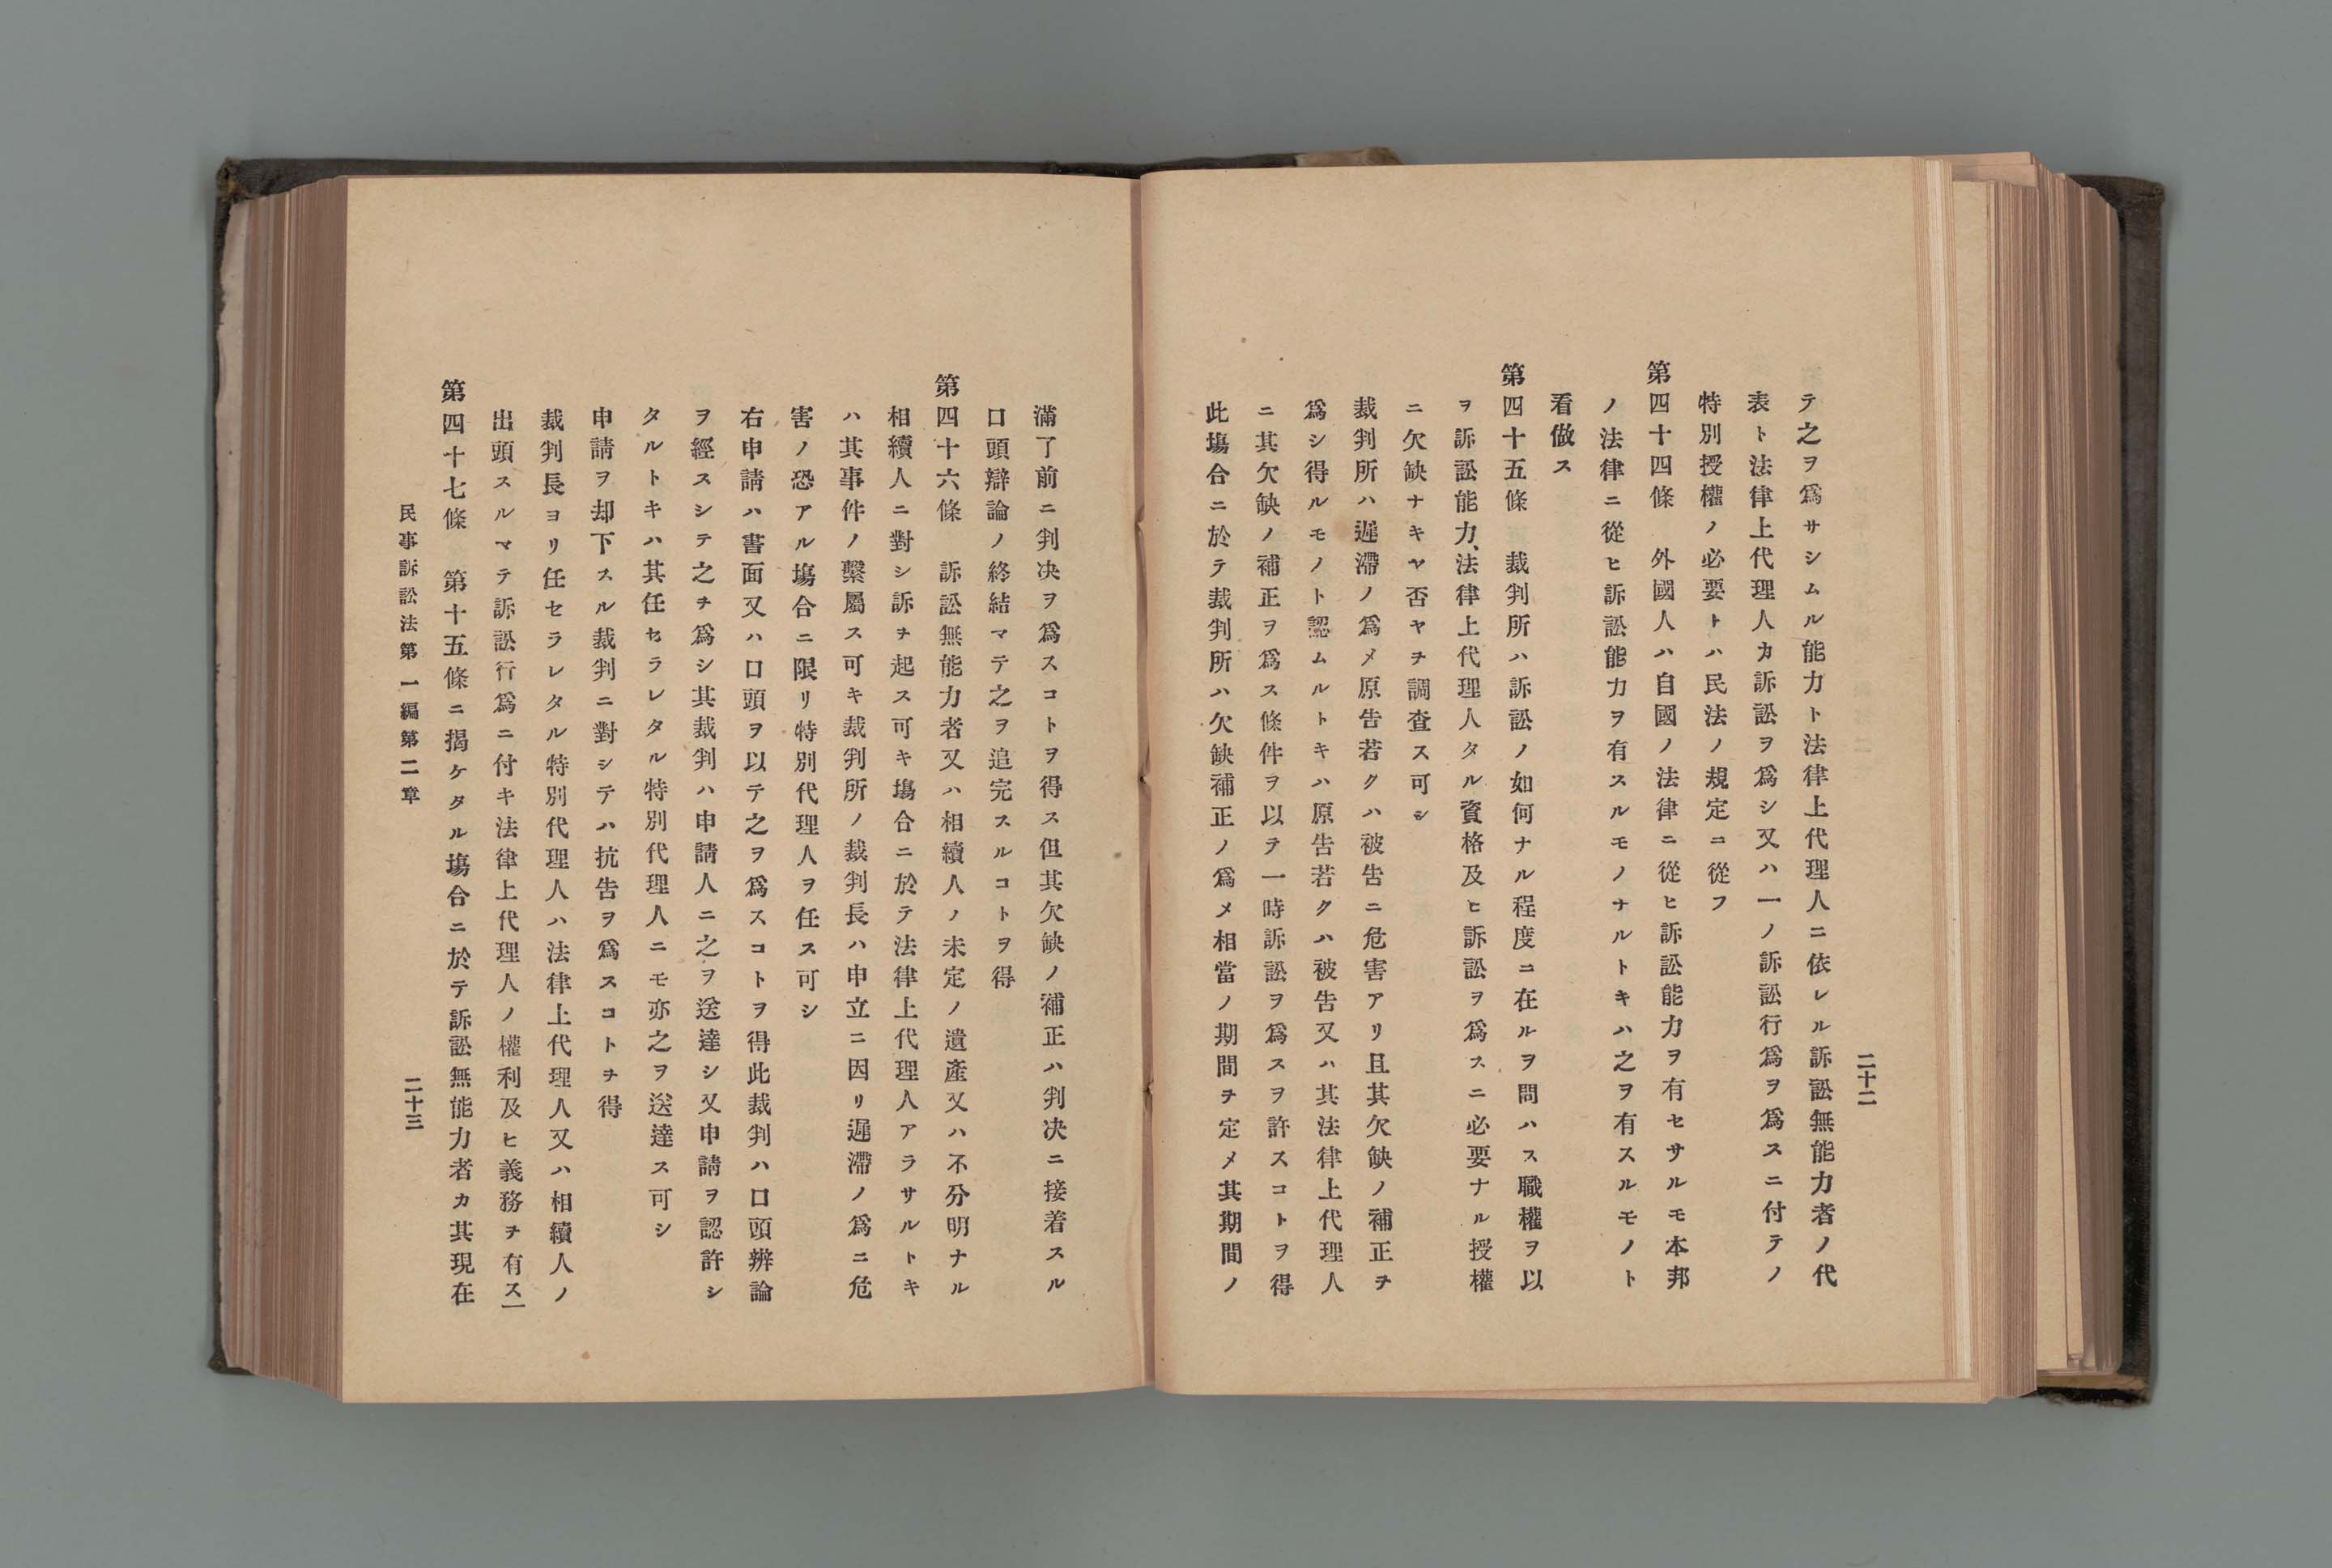 二十二
テ之ヲ爲サシムル能力ト法律上代理人ニ依レル訴訟無能力者ノ代
表ト法律上代理人カ訴訟ヲ爲シ又ハ一ノ訴訟行爲ヲ爲スニ付テノ
特別授權ノ必要トハ民法ノ規定ニ從フ
第四十四條　外國人ハ自國ノ法律ニ從ヒ訴訟能力ヲ有セサルモ本邦
ノ法律ニ從ヒ訴訟能力ヲ有スルモノナルトキハ之ヲ有スルモノト
看做ス
第四十五條　裁判所ハ訴訟ノ如何ナル程度ニ在ルヲ問ハス職權ヲ以
ヲ訴訟能力、法律上代理人タル資格及ヒ訴訟ヲ爲スニ必要ナル授權
ニ欠缺ナキヤ否ヤヲ調査ス可シ
裁判所ハ遲滯ノ爲メ原告若クハ被告ニ危害アリ且其欠缺ノ補正ヲ
爲シ得ルモノト認ムルトキハ原告若クハ被告又ハ其法律上代理人
ニ其欠缺ノ補正ヲ爲ス條件ヲ以テ一時訴訟ヲ爲スヲ許スコトヲ得
此塲合ニ於テ裁判所ハ欠缺補正ノ爲メ相當ノ期間ヲ定メ其期間ノ
滿了前ニ判决ヲ爲スコトヲ得ス但其欠缺ノ補正ハ判决ニ接着スル
口頭辯論ノ終結マテ之ヲ追完スルコトヲ得
第四十六條　訴訟無能力者又ハ相續人ノ未定ノ遺產又ハ不分明ナル
相續人ニ對シ訴ヲ起ス可キ塲合ニ於テ法律上代理人アラサルトキ
ハ其事件ノ繫屬ス可キ裁判所ノ裁判長ハ申立ニ因リ遲滯ノ爲ニ危
害ノ恐アル塲合ニ限リ特別代理人ヲ任ス可シ
右申請ハ書面又ハ口頭ヲ以テ之ヲ爲スコトヲ得此裁判ハ口頭辨論
ヲ經スシテ之ヲ爲シ其裁判ハ申請人ニ之ヲ送達シ又申請ヲ認許シ
タルトキハ其任セラレタル特別代理人ニモ亦之ヲ送達ス可シ
申請ヲ却下スル裁判ニ對シテハ抗告ヲ爲スコトヲ得
裁判長ヨリ任セラレタル特別代理人ハ法律上代理人又ハ相續人ノ
出頭スルマテ訴訟行爲ニ付キ法律上代理人ノ權利及ヒ義務ヲ有ス
第四十七條　第十五條ニ揭ケタル塲合ニ於テ訴訟無能力者カ其現在
民事訴訟法第一編第二章
二十三